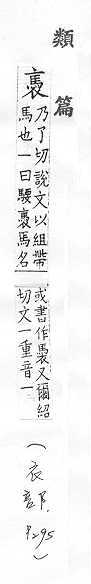 類篇
裹乃了切說文以組帶
馬也一曰騕裹馬名
或書作褭又爾紹
切文一重音一
(衣部.P.295)